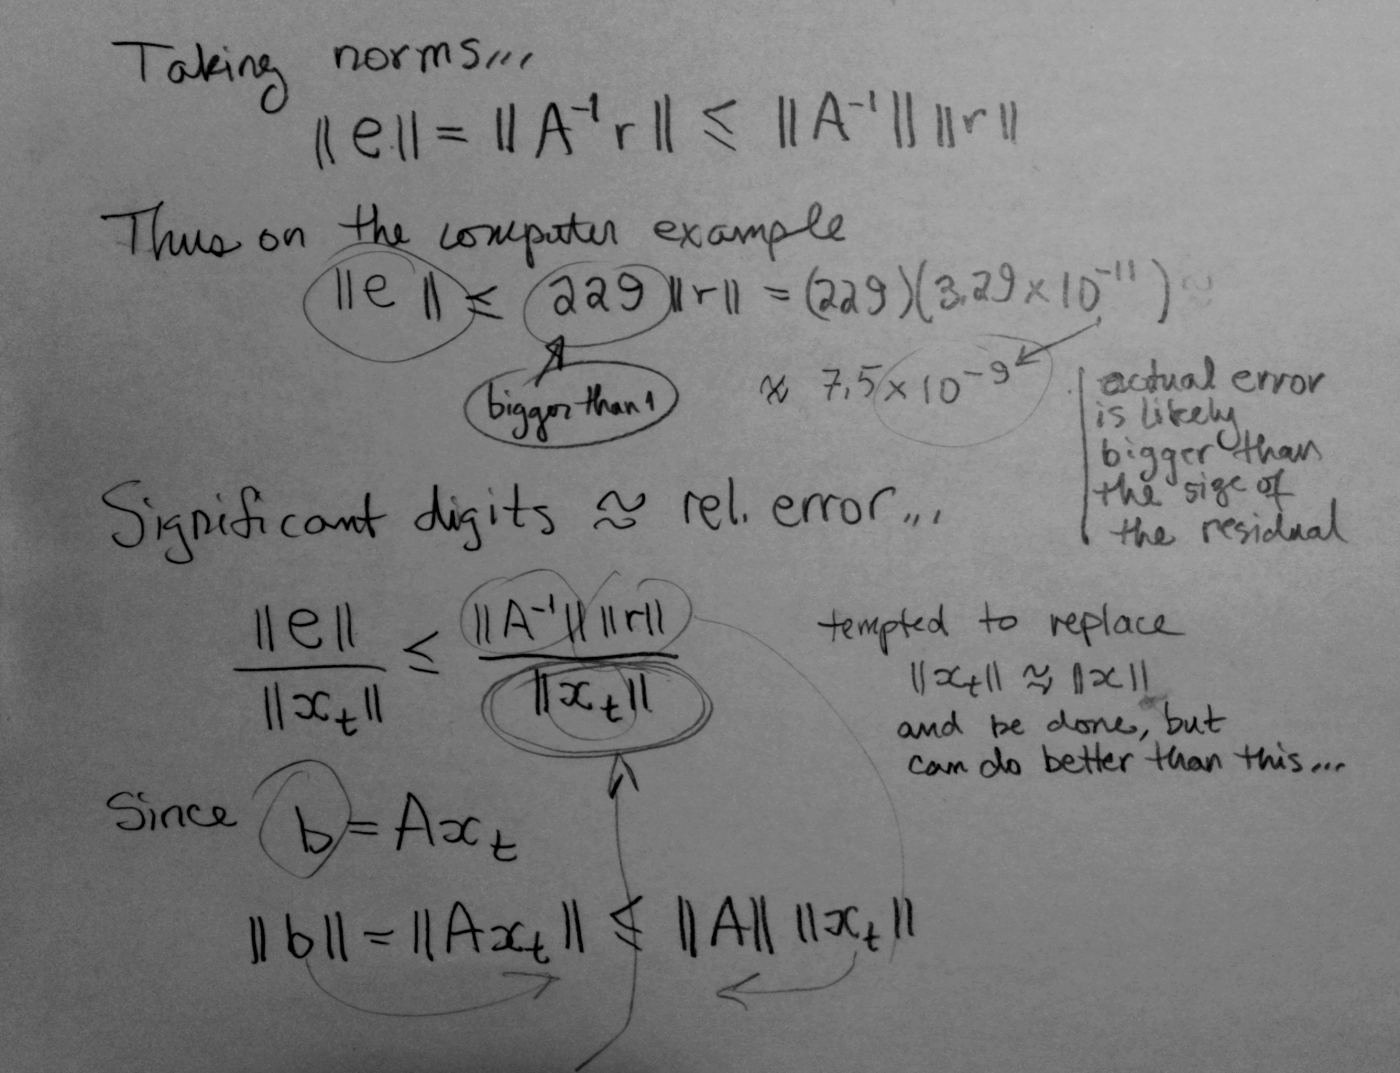 Taking norms...
||e|| = ||A⁻¹r|| ≤ ||A⁻¹|| ||r||
Thus on the computer example
||e|| ≤ 229 ||r|| = (229)(3.29×10⁻¹¹)
bigger than 1
≈ 7.5×10⁻⁹
actual error
is likely
bigger than
the size of
the residual
Significant digits ≈ rel. error...
||e|| / ||xₜ|| ≤ ||A⁻¹|| ||r|| / ||xₜ||
tempted to replace
||xₜ|| ≈ ||x||
and be done, but
can do better than this...
Since b = Axₜ
||b|| = ||Axₜ|| ≤ ||A|| ||xₜ||